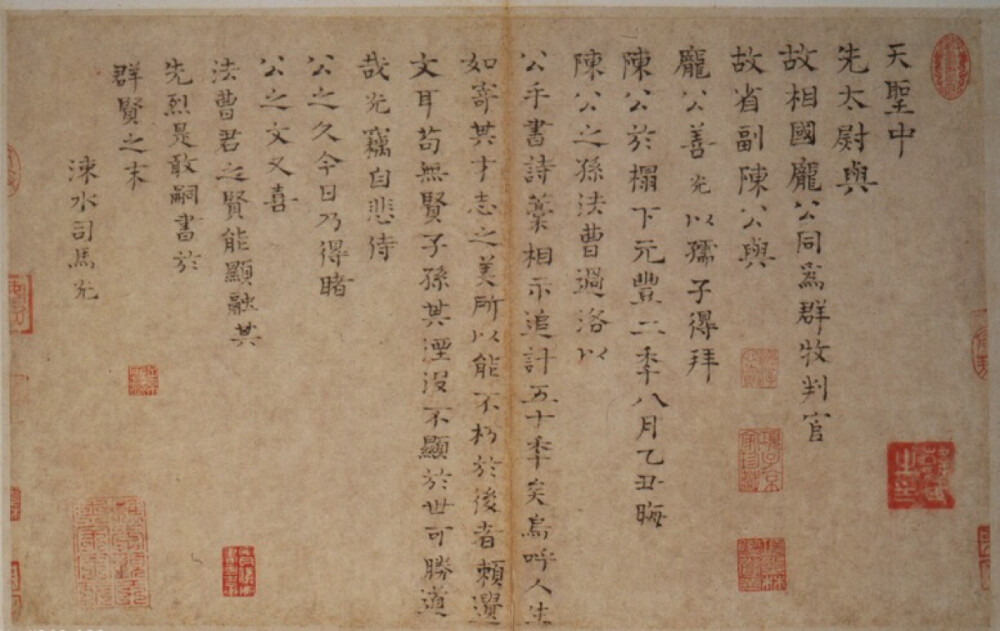 天聖中
先太尉與
故相國龐公同爲群牧判官
故省副陳公與
龐公善光以孺子得拜
陳公於榻下元豐二年八月乙丑晦
陳公之孫法曹過洛以
公手書詩藁相示追計五十年矣烏呼人生
如寄其才志之美所以能不朽於後者賴遺
文耳苟無賢子孫其湮没不顯於世可勝道
哉光竊自悲待
公之久今日乃得睹
公之文又喜
法曹君之賢能顯融其
先烈是敢嗣書於
群賢之末
涑水司馬光